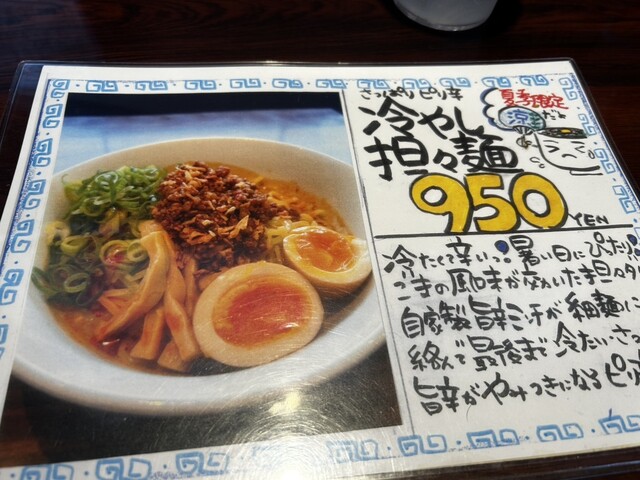 さっぱりピリ辛
夏季限定
冷やし
担々麺
950 YEN
冷たくて辛いっ!暑い日にぴったり。
ごまの風味が効いた担々タ
自家製旨辛ミンチが細麺に
絡んで最後まで冷たいさっ
旨辛がやみつきになるピリ